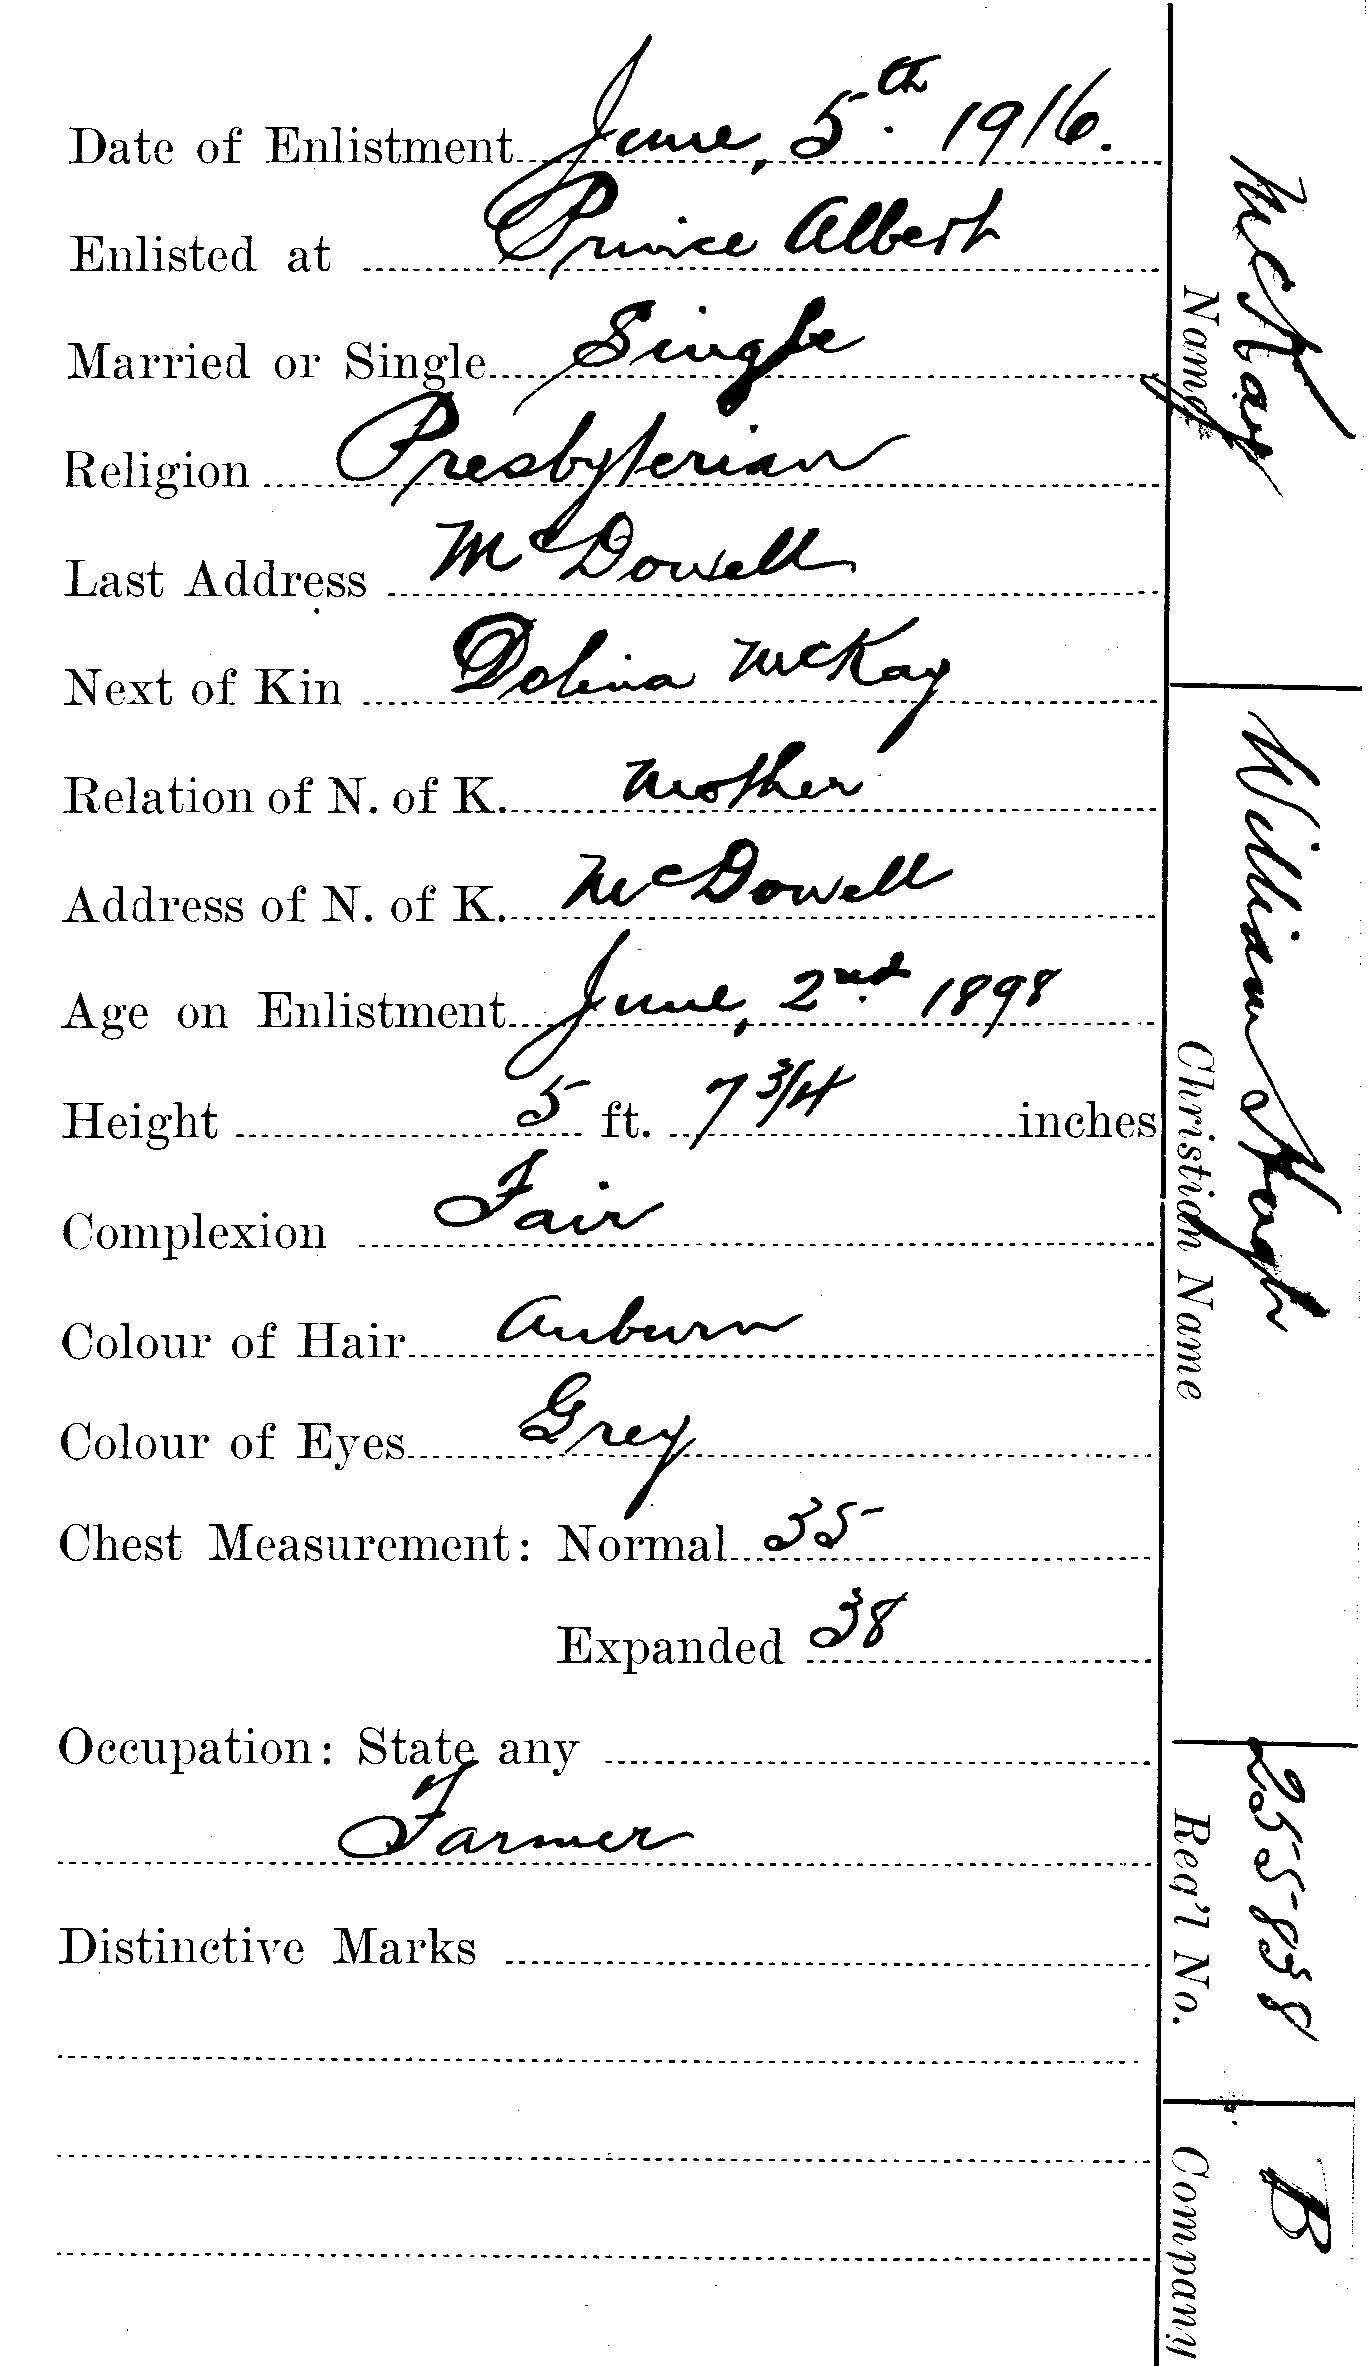 Date of Enlistment June, 5th 1916.
Enlisted at Prince Albert
Married or Single Single
Religion Presbyterian
Last Address McDowell
Next of Kin Dolina McKay
Relation of N. of K. Mother
Address of N. of K. McDowell
Age on Enlistment June, 2nd 1898
Height 5 ft. 7 3/4 inches
Complexion Fair
Colour of Hair Auburn
Colour of Eyes Grey
Chest Measurement: Normal 35
Expanded 38
Occupation: State any
Farmer
Distinctive Marks
McKay
Name
William Hugh
Christian Name
255838
Reg'l No.
B
Company